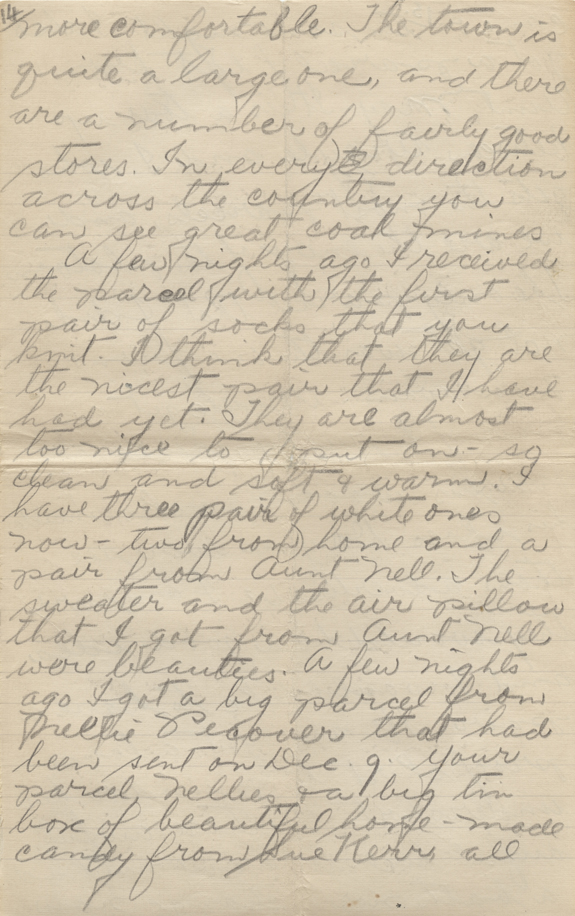 14
more comfortable. The town is
quite a large one, and there
are a number of fairly good
stores. In every direction
across the country you
can see great coal mines
A few nights ago I received
the parcel with the first
pair of socks that you
knit. I think that they are
the nicest pair that I have
had yet. They are almost
too nice to put on - so
clean and soft & warm. I
have three pair of white ones
now - two from home and a
pair from Aunt Nell. The
sweater and the air pillow
that I got from Aunt Nell
were beauties. A few nights
ago I got a big parcel from
Nellie Pecover that had
been sent on Dec. 9. your
parcel, Nellies & a big tin
box of beautiful home-made
candy from Sue Kerr, all